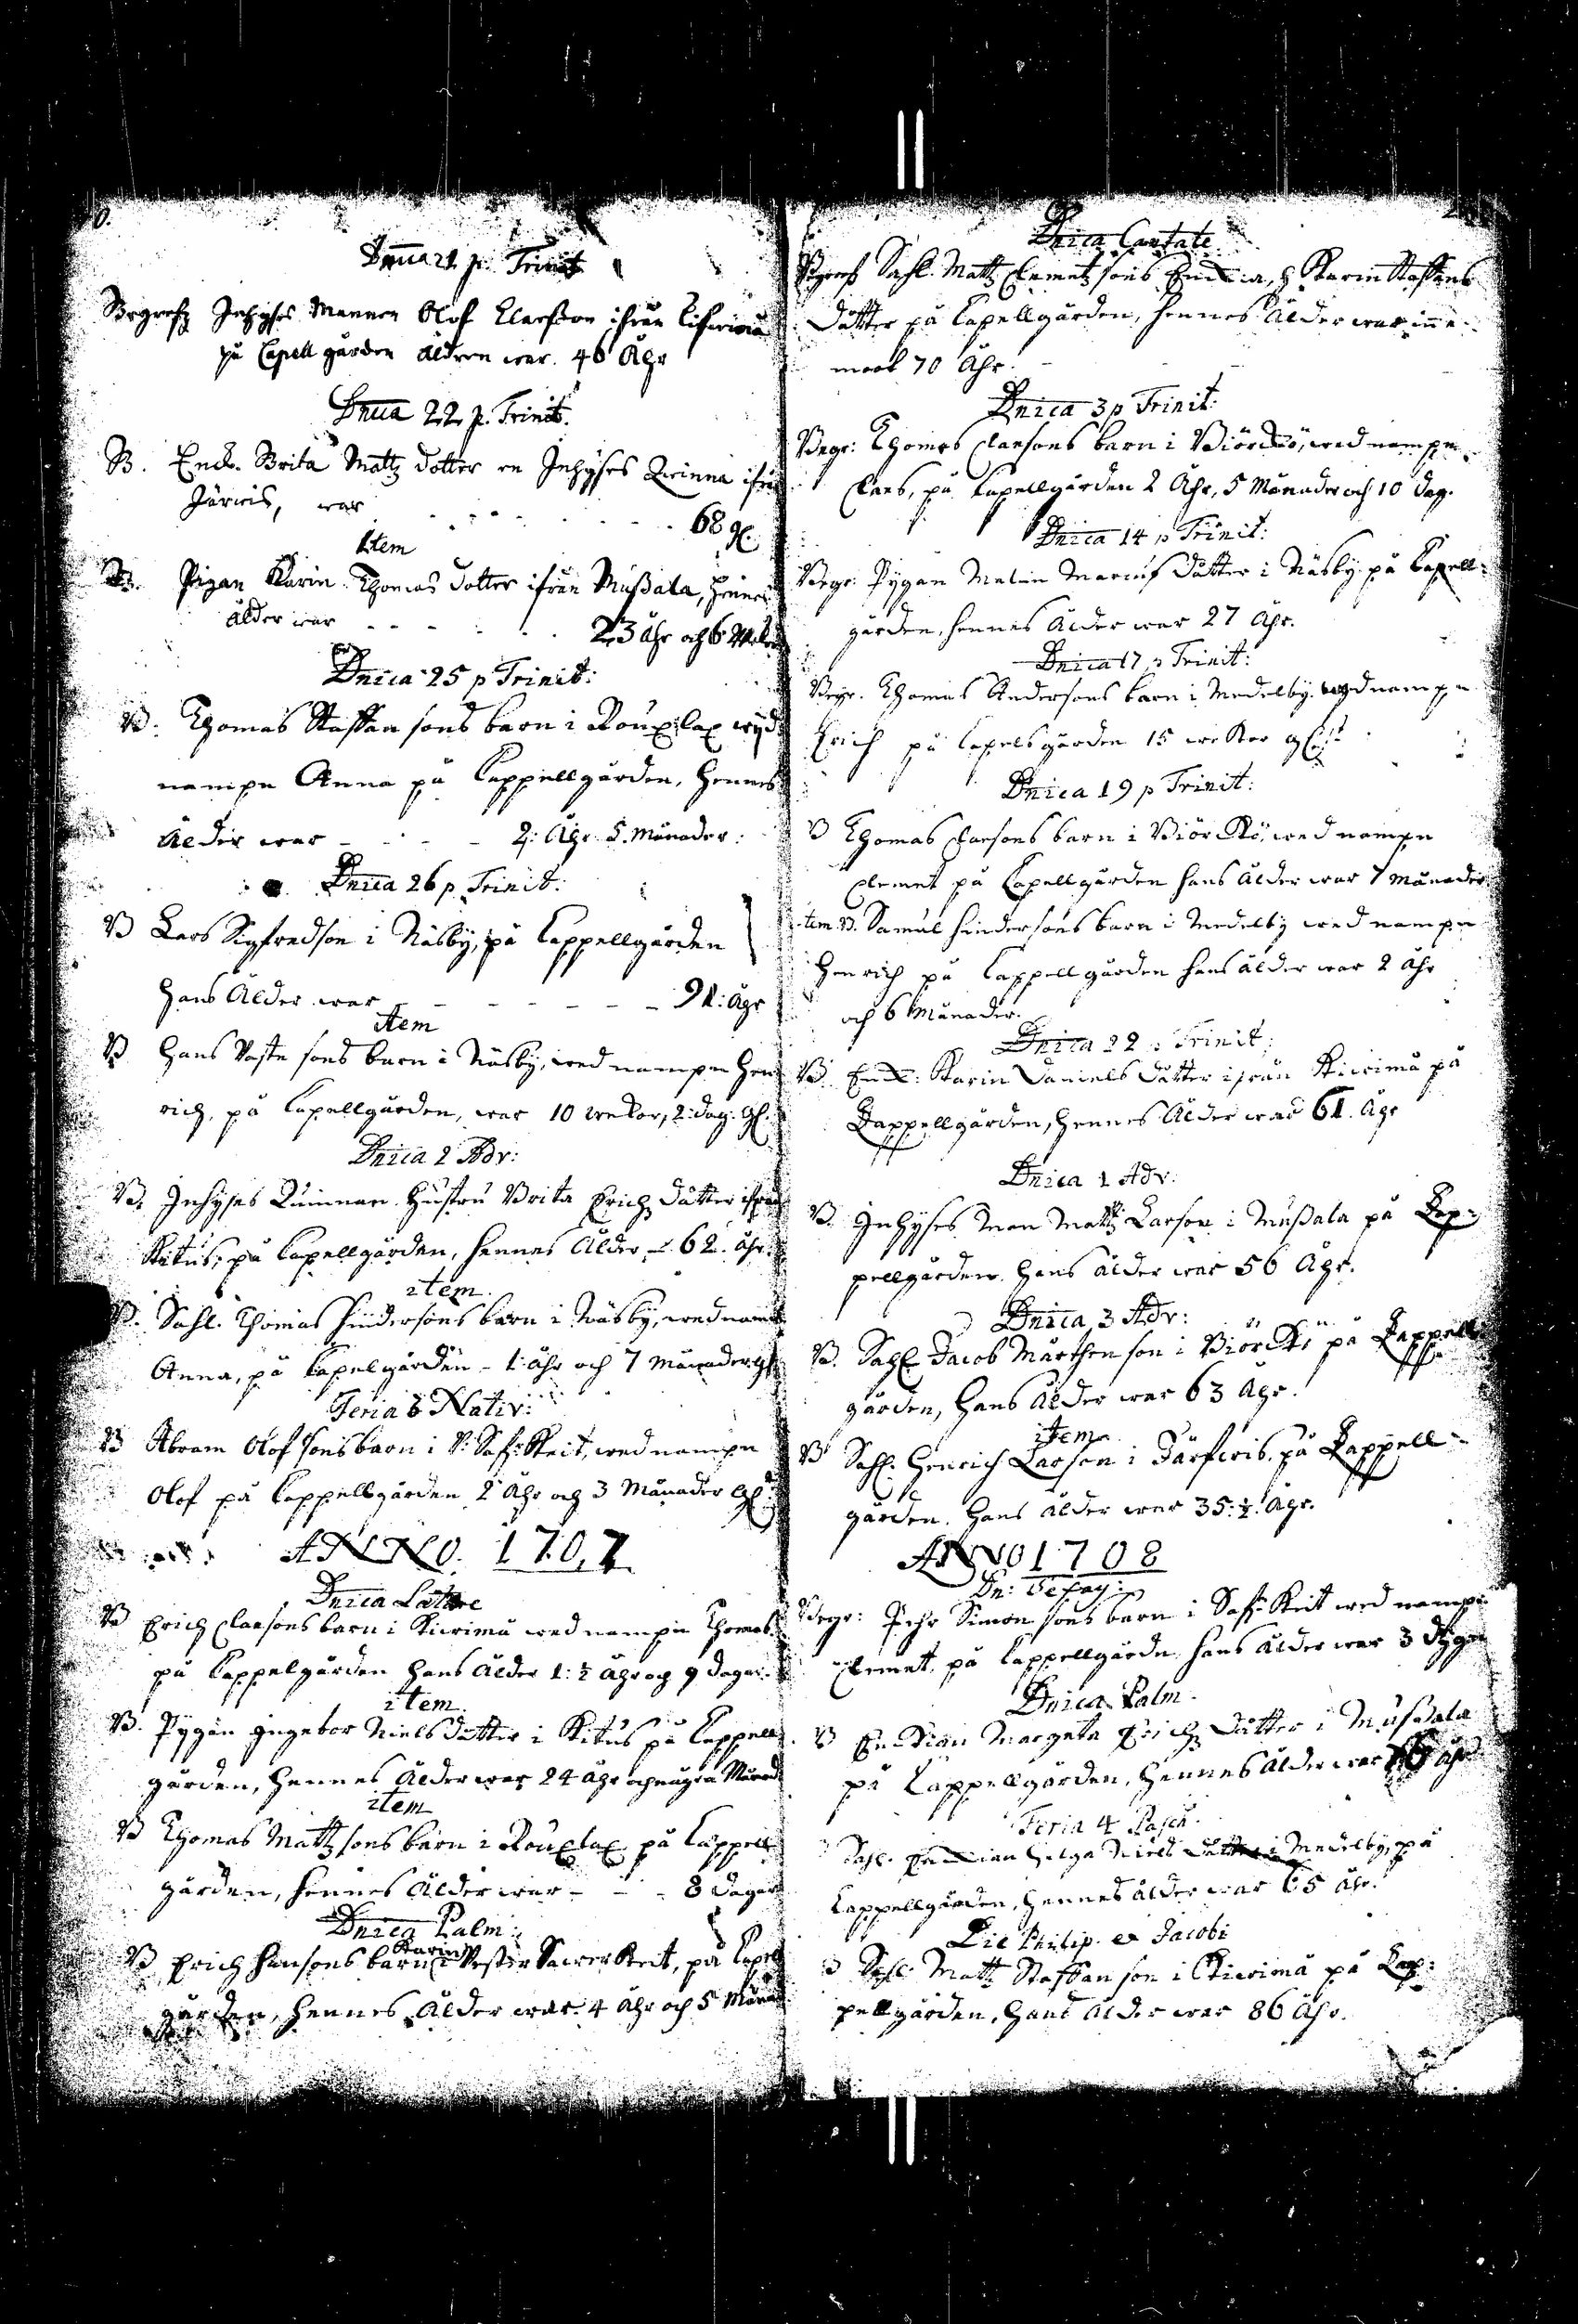 0.
Dnica 21 p. Trinit
Begrofz Inhyses Mannen Olof Claesson ifrån
på Capell gården åldren war. 46 Åhr
Dnica 22 p. Trinit.
B. Enck. Brita Mattz dotter en Inhyses Qwinna ifrån
Järwis, war . . . . . . . 68 gl.
Item
B. Pigan Karin Thomas dotter ifrån Mußala, hennes
ålder war - - - . . . 23 åhr och 6
Dnica 25 p Trinit:
B. Thomas Staffan sons barn i Rouxlax wyd
nampn Anna på Cappellgården, hennes
ålder war - - - - 2: Åhr 5. Månader:
Dnica 26 p. Trinit:
B Lars Sigfredson i Näsby, på Cappellgården
hans Ålder war - - - - - - 91: åhr
item
B Hans sons barn i Näsby, wed nampn Hen
rich, på Capellgården, war 10 wekor, 2: dag: gl.
Dnica 2 Adv:
B. Inhyses Quinnan Hustru Brita Erichz dåtter ifrån
Kitus, på Capellgården, hennes Ålder - 62. åhr.
item.
B. Sahl. Thomas Hindersons barn i Näsby, wed namn
Anna, på Capelgården - 1: åhr och 7 månader gl
Feria 3 Nativ:
B Abram Olof sons barn i wed nampn
Olof på Cappellgården 2 Åhr och 3 Månader gl:
ANNO. 1707
Dnica Lätare
B Erich Claesons barn i Kiwimå wed nampn Thomas
på Cappelgården hans Ålder 1: ½ Åhr och 9 dagar.
item
B. Pygan Ingebor Nielsdåtter i Kitus på Cappell
gården, hennes Ålder war 24 åhr och några Månad
item
B Thomas Mattz sons barn i Rouxlax på Cappell
gården, hennes Ålder war - - - 8 dagar
Dnica Palm:
Karin
B Erich Hansons barn i Wester Sawerkeit, på Capell
gården, hennes Ålder war 4 åhr och 5 Månad
Dnica Cantate
Begrofz Sahl. Mattz Clemetz sons Enckia, h Karin Staffans
dåtter på Capellgården, hennes Ålder war inne
moot 70 Åhr.
Dnica 3 p Trinit:
Begr: Thomes Claesons barn i Biörckö, wed nampn
Claes, på Capellgården 2 Åhr, 5 Månader och 10 dag.
Dnica 14 p Trinit:
Begr: Pygan Malin Marcus dåtter i Näsby på Capell:
gården, hennes Ålder war 27 Åhr.
Dnica 17 p Trinit:
Begr. Thomas Andersons barn i Medelby. wed nampn
Erich på Capelsgården 15 wekor gl:
Dnica 19 p Trinit:
B Thomas Claesons barn i Biörckö, wed nampn
Clemet på Capellgården hans ålder war 7 Månader
item B. Samul Hindersons barn i Medelby wed nampn
Henrich på Cappellgården hans ålder war 2 åhr
och 6 Månader.
Dnica 22 p Trinit:
B Enck: Karin Daniels dåtter ifrån Kiwimå på
Cappellgården, hennes Ålder war 61. Åhr
Dnica 1 Adv:
B. Inhyses Man Mattz Larson i Mußala på Cap-
pellgården hans ålder war 56 Åhr.
Dnica 3 Adv:
B. Sahl Jacob Mårthenson i Biörckö på Cappell
gården, hans Ålder war 63 Åhr.
item
B Sahl. Henrich Larson i Järfwis på Cappell-
gården. hans ålder war 35. ½. Åhr.
ANNO 1708
Dn:
Begr: Pehr Simon sons barn i wed nampn
Clemet, på Cappellgården hans ålder war 3 dygn
Dnica Palm.
B Enckian Margeta Erichz dåtter i Mußala
på Cappellgården, hennes ålder war åhr
Feria 4 Pasch.
Sahl. Enckian Helga Niels dåtter i Medelby, på
Cappellgården, hennes ålder war 65 åhr.
Die Philip. et Jacobi
B Sahl: Mattz Staffan son i Kiwimå på Cap:
pellgården, hans ålder war 86 åhr.